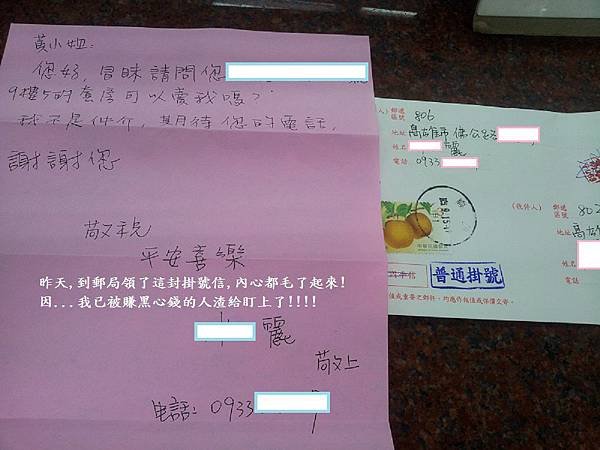 黃小姐:
您好,冒昧請問您
9樓5的套房可以賣我嗎?
我不是仲介,期待您的電話,
謝謝您
敬祝
平安喜樂
昨天,到郵局領了這封掛號信,內心都毛了起來!
因...我已被賺黑心錢的人渣給盯上了!!!!
麗
敬上
電話: 0933
人) 郵遞區號 806
地址 高雄市
姓名 麗
電話 0933
普通掛號
(收件人) 郵遞區號 802
地址 高雄
姓名
電話
值或重要之郵件,均應作報值或保價交寄。